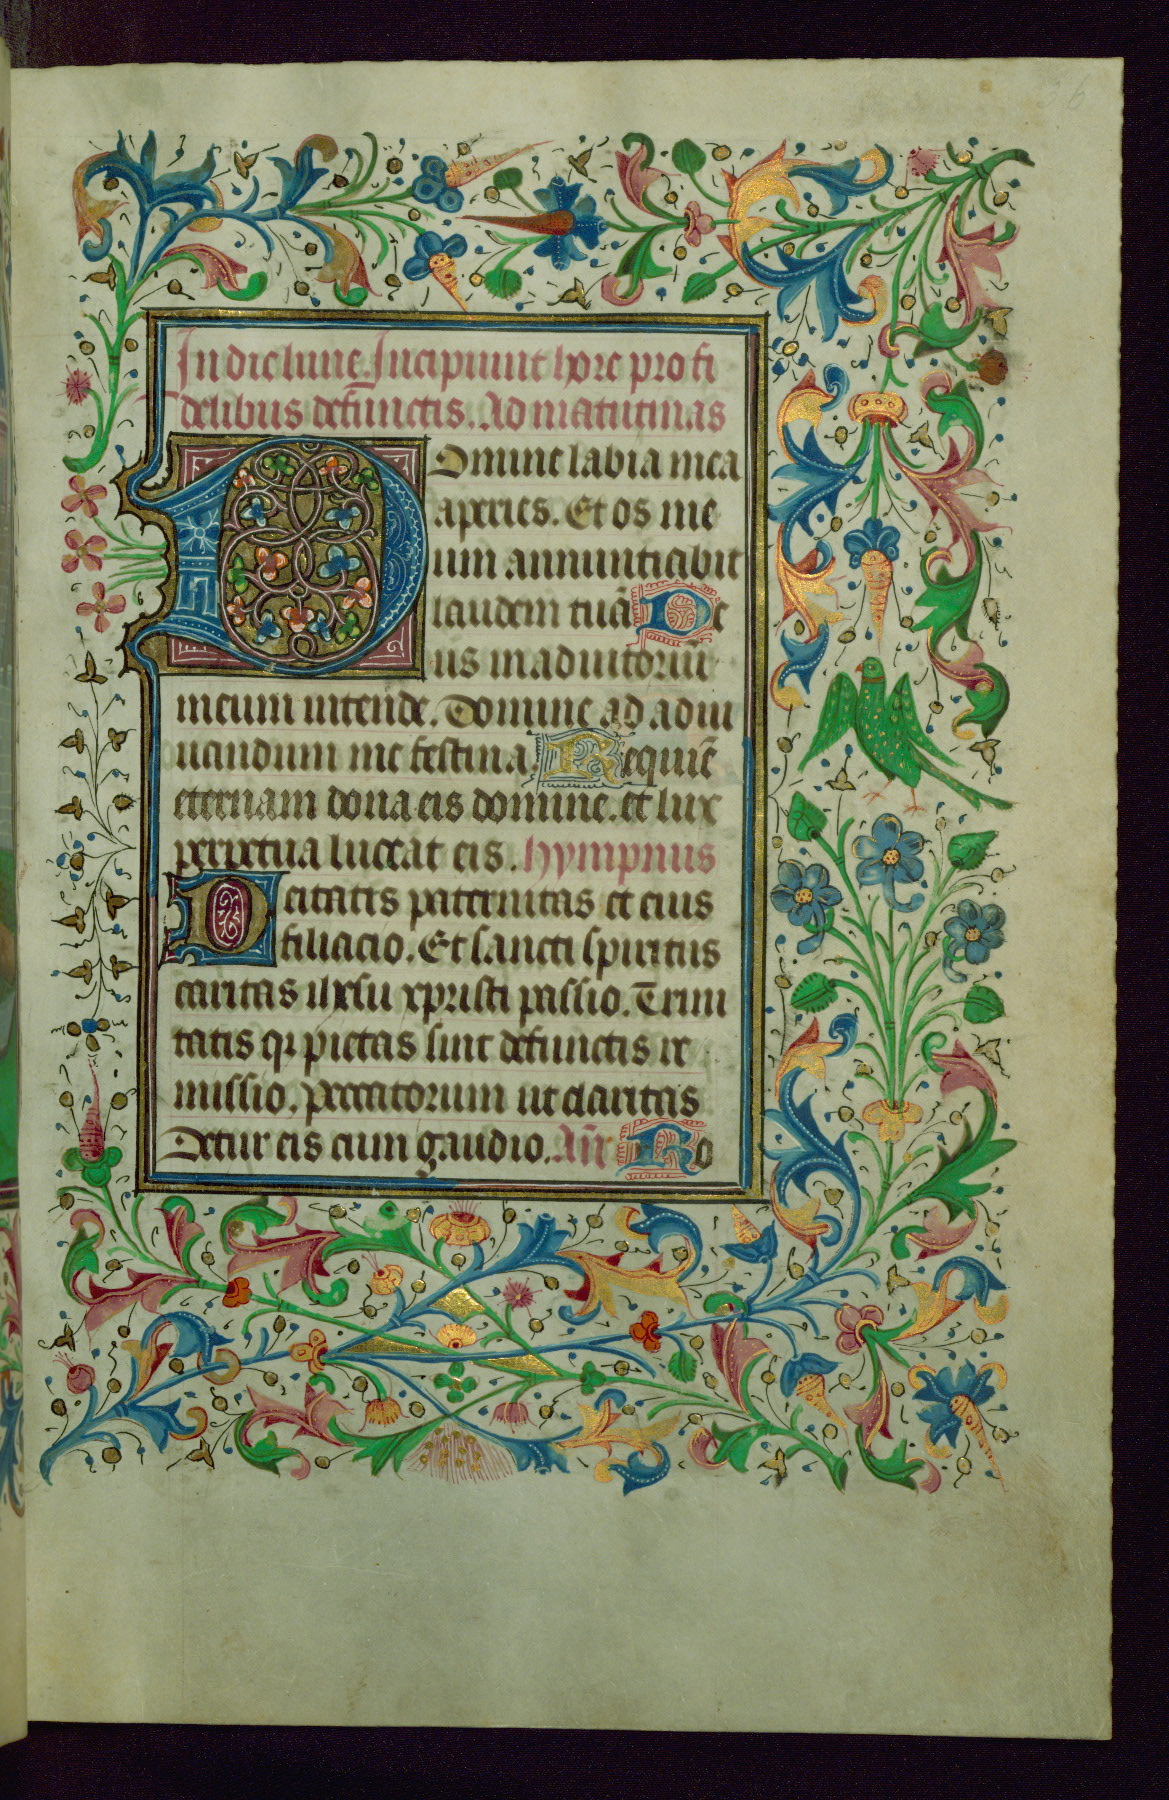 36
In die lune. Incipiunt hore pro fi
delibus defunctis. Ad matutinas
Domine labia mea
aperies. Et os me
um annunticabit
laudem tuā De
us in adiutoriū
meum intende. Domine ad adiu
uandum me festina Requiē
eternam dona eis domine. et lux
perpetua luceat eis. hympnus
Deitatis paternitas et eius
filiacio. Et sancti spiritus
caritas ihesu xpristi passio. Trini
tatis qꝫ pietas sint defunctis re
missio, peccatorum ut claritas
Detur eis cum gaudio. Añ Ro